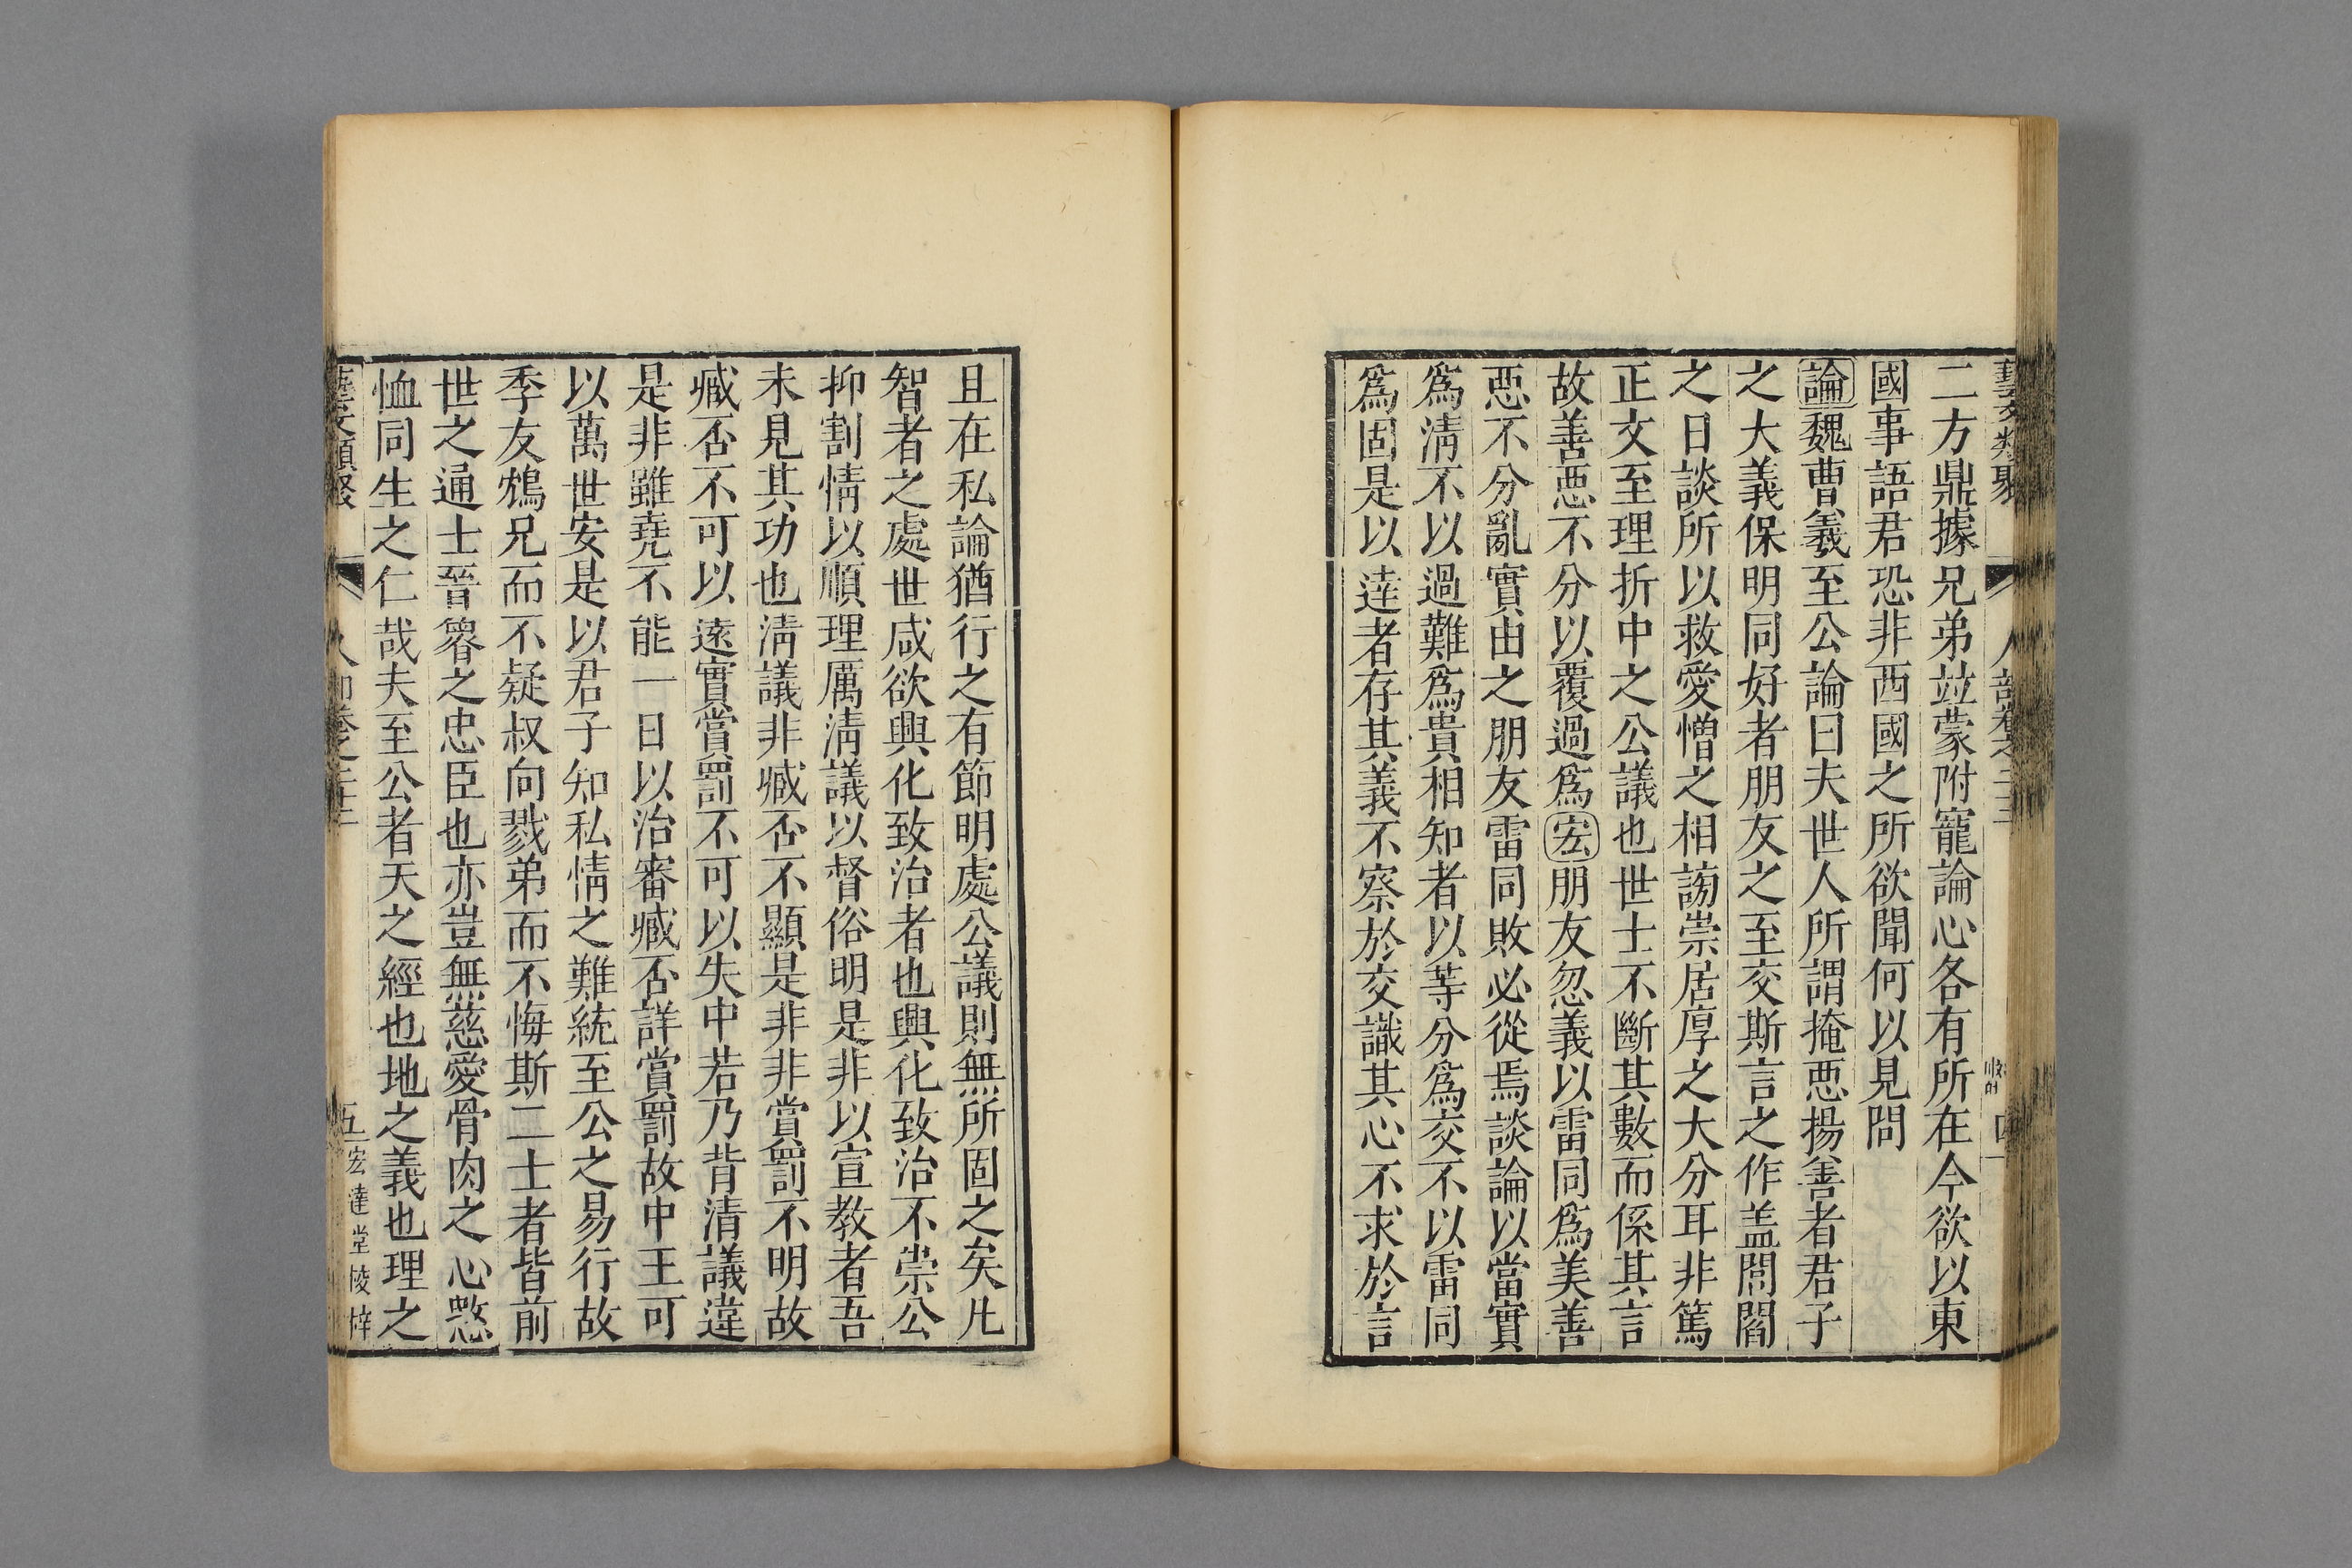 藝文類聚 人部卷之二十三 四
二方鼎據兄弟竝蒙附寵論心各有所在今欲以東
國事語君恐非西國之所欲聞何以見問
論魏曹羲至公論曰夫世人所謂掩惡揚善者君子
之大義保明同好者朋友之至交斯言之作盖閭閻
之日談所以救愛憎之相謗崇居厚之大分耳非篤
正文至理折中之公議也世士不斷其數而係其言
故善惡不分以覆過爲宏朋友忽義以雷同爲美善
惡不分亂實由之朋友雷同敗必從焉談論以當實
爲清不以過難爲貴相知者以等分爲交不以雷同
爲固是以達者存其義不察於交識其心不求於言
且在私論猶行之有節明處公議則無所固之矣凡
智者之處世咸欲興化致治者也興化致治不崇公
抑割情以順理厲清議以督俗明是非以宣教者吾
未見其功也清議非臧否不顯是非非賞罰不明故
臧否不可以遠實賞罰不可以失中若乃背清議違
是非雖堯不能一日以治審臧否詳賞罰故中王可
以萬世安是以君子知私情之難統至公之易行故
季友鴆兄而不疑叔向戮弟而不悔斯二士者皆前
世之通士晉魯之忠臣也亦豈無慈愛骨肉之心愍
恤同生之仁哉夫至公者天之經也地之義也理之
藝文類聚 人部卷之二十三 五 宏達堂棱梓